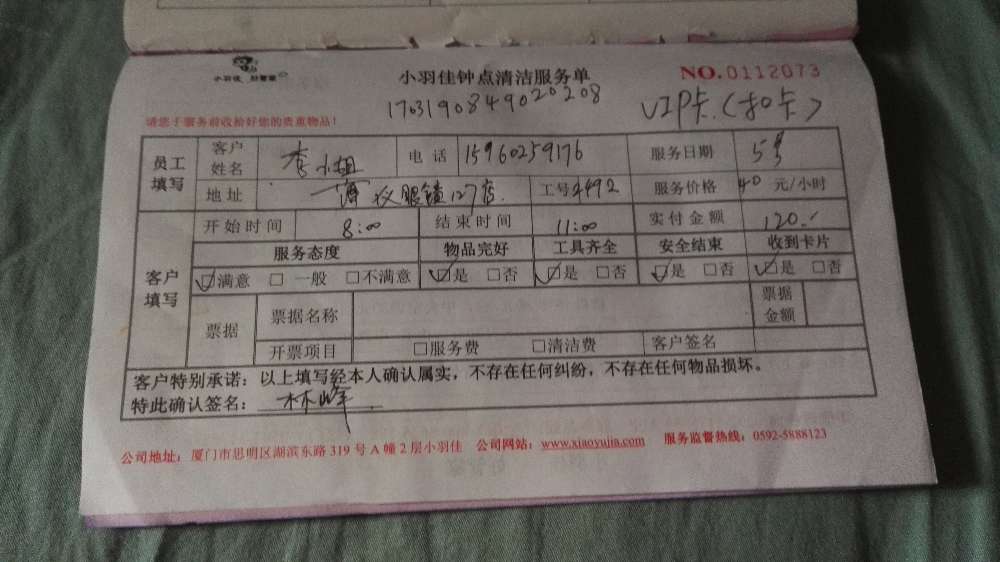 小羽佳 好管家
小羽佳钟点清洁服务单
NO.0112073
1703190849020208
VIP卡(扣卡)
请您于服务前收拾好您的贵重物品!
员工填写 客户姓名 李小姐 电话 15960259176 服务日期 5号
地址 眼镜127店 工号4492 服务价格 40 元/小时
客户填写 开始时间 8:00 结束时间 11:00 实付金额 120.-
服务态度 物品完好 工具齐全 安全结束 收到卡片
☑满意 □一般 □不满意 ☑是 □否 ☑是 □否 ☑是 □否 ☑是 □否
票据 票据名称 票据金额
开票项目 □服务费 □清洁费 客户签名
客户特别承诺:以上填写经本人确认属实,不存在任何纠纷,不存在任何物品损坏。
特此确认签名: 林峰
公司地址:厦门市思明区湖滨东路 319 号 A 幢 2 层小羽佳 公司网站:www.xiaoyujia.com 服务监督热线:0592-5888123